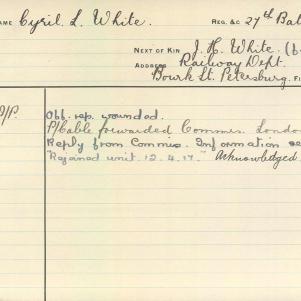 NAME Cyril L. White. REG. &c 27th Bat
NEXT OF KIN J. H. White. (b
ADDRESS Railway Dept.
Bourk St. Petersburg. FI
P/P. Off. rep. wounded.
P/Cable forwarded Commis. London
Reply from Commis. Information se
"Rejoined unit. 12.4.17." Acknowledged